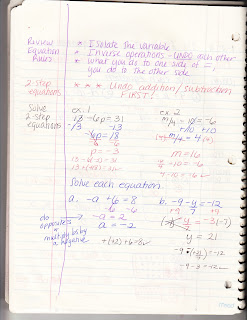 Review Equation Rules
* Isolate the variable
* Inverse operations - UNDO each other
* what you do to one side of =, you do to the other side
2-step equations
* * * Undo addition/subtraction FIRST!
Solve 2-step equations
ex. 1
13 - 6p = 31
-13 -13
-6p = 18
-6 -6
p = -3
13 - 6(-3) = 31
ex 2
m/4 - 10 = -6
+10 +10
m/4 = 4
m = 16
16/4 - 10 = -6
4 - 10 = -6 ✓
Solve each equation.
a. -a + 6 = 8
-6 -6
-a = 2
a = -2
+(+2) + 6 = 8 ✓
do opposites
multiply bs by a negative
b. -9 - y/7 = -12
+9 +9
y = 21
-9 - (21/7) = -12
-9 - 3 = -12 ✓
mead